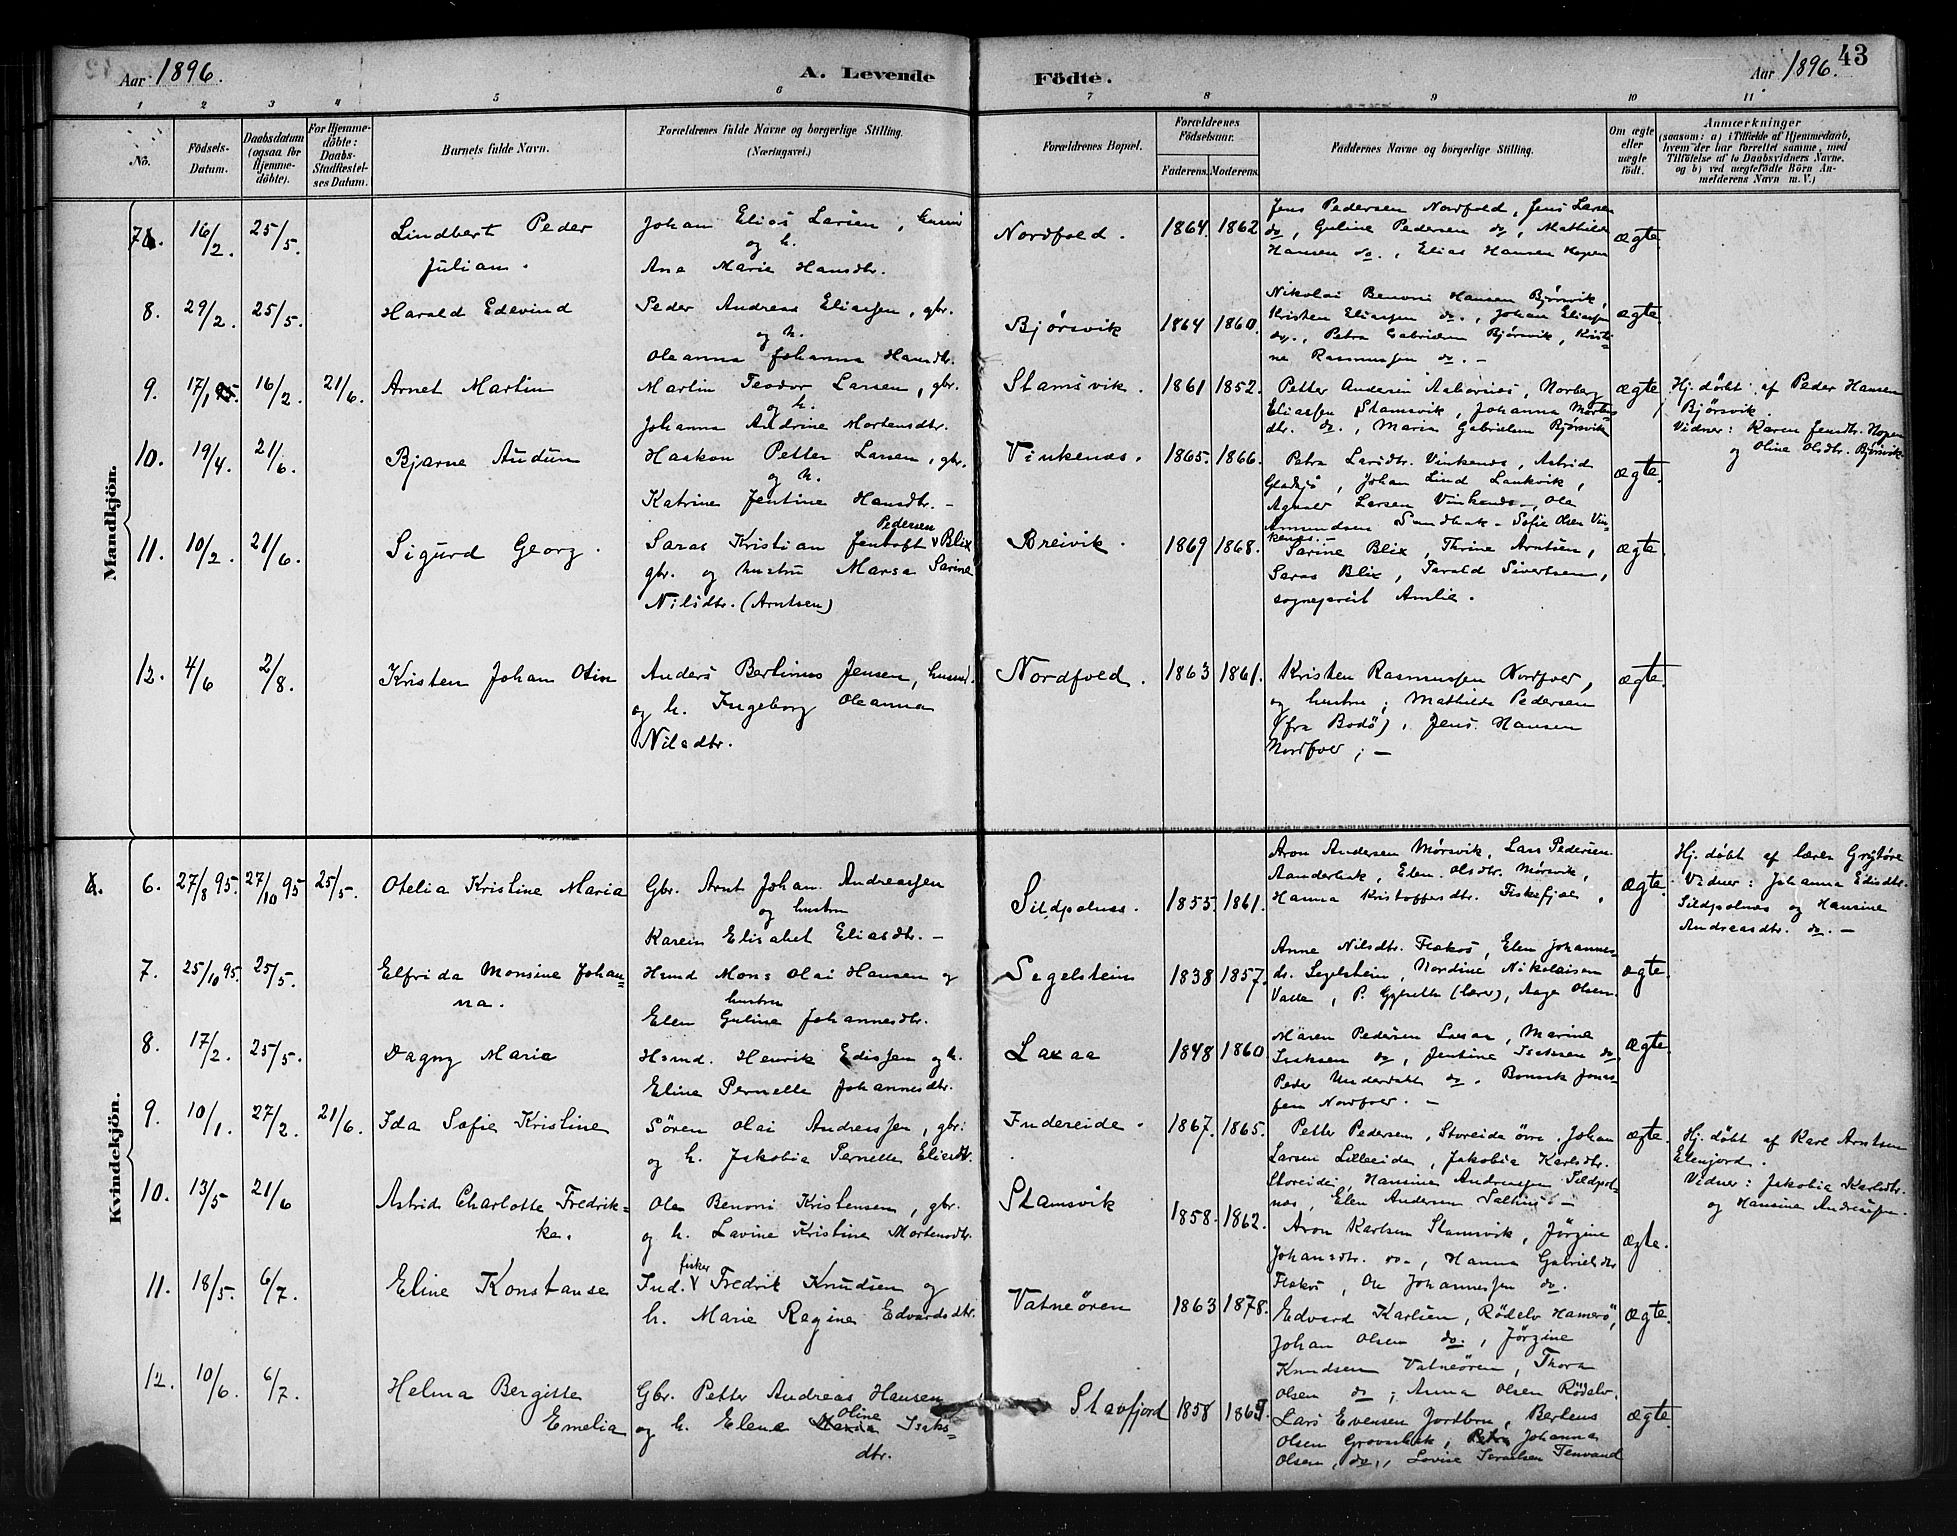 Aar 1896.
A. Levende Födte.
Aar 1896.
43
1 2 3 4 5 6 7 8 9 10 11
No.
Födsels-Datum.
Daabsdatum (ogsaa for Hjemme-döbte).
For Hjemme-döbte: Daabs-Stadfæstel-ses Datum.
Barnets fulde Navn.
Forældrenes fulde Navne og borgerlige Stilling.
(Næringsvei.)
Forældrenes Bopæl.
Forældrenes Födselsaar.
Faderens. Moderens.
Faddernes Navne og borgerlige Stilling.
Om ægte eller uægte födt.
Anmærkninger
(saasom: a) i Tilfælde af Hjemmedaab,
hvem der har forrettet samme, med
Tilföielse af to Daabsvidners Navne,
og b) ved uægtefödte Börn An-
melderens Navn m. V.)
Mandkjön.
7. 16/2. 25/5. Lindbert Peder
Julian.
Johan Elias Larsen,
og h.
Ane Marie Hansdtr.
Nordfold. 1864. 1862
Jens Pedersen Nordfold, Jens Larsen
do, Guline Pedersen do, Mathilde
Hansen do., Elias Hansen Hopen
ægte.
8. 29/2. 25/5. Harald Edevind
Peder Andreas Eliassen, gbr.
og h.
Oleanna Johanna Hansdtr.
Bjørsvik 1864 1860.
Nikolai Benoni Hansen Bjørsvik,
Kristen Eliassen do., Johan Eliassen
do., Petra Gabrielsen Bjørsvik, Kristi-
ne Rasmussen do. –
ægte.
9. 17/1 95. 16/2. 21/6. Arnet Martin
Martin Teodor Larsen, gbr.
og h.
Johanna Andrine Mortensdtr.
Stamsvik. 1861 1852.
Petter Andersen, Norberg
Eliassen Stamsvik, Johanna Mortens
dtr. do., Maria Gabrielsen Bjørsvik
ægte
Hj. døbt af Peder Hansen
Bjørsvik.
Vidner: Karen Jensdtr. Hopen
og Oline Olsdtr. Bjørsvik
10. 19/4. 21/6. Bjarne Audun
Haakon Petter Larsen, gbr.
og h.
Katrine Jentine Hansdtr. –
Vinkenes. 1865. 1866.
Petra Larsdtr. Vinkenes, Astrid
Johan Lind
Larsen Vinkenes, Ole
Amundsen Sandbak – Sofie Olsen Vin-
kenes. –
ægte.
11. 10/2. 21/6. Sigurd Georg.
Saras Kristian Jentoft Pedersen Blix
gbr. og hustru Marsa Sarine
Nilsdtr. (Arntsen)
Breivik. 1869 1868.
Sarine Blix, Thrine Arntsen,
Saras Blix, Tarald Sivertsen,
sogneprest Amlie.
ægte.
12. 4/6 2/8. Kristen Johan Otin
Anders Bertinus Jensen, husmd.
og h. Ingeborg Oleanna
Nilsdtr.
Nordfold. 1863 1861.
Kristen Rasmussen Nordfold,
og hustru; Mathilde Pedersen
(fra Bodö), Jens Hansen
Nordfold; –
ægte.
Kvindekjön.
6. 27/8 95. 27/10 95 25/5. Otelia Kristine Maria
Gbr. Arnt Johan Andreassen
og hustru
Karen Elisabet Eliasdtr. –
Sildpolnes. 1855. 1861.
Aron Andersen Mørsvik, Lars Pedersen
Aanderbak, Elen Olsdtr. Mørsvik,
Hanna Kristoffersdtr. Fiskefjord,
ægte.
Hj. døbt af lærer Grytöre
Vidner: Johanna Edisdtr.
Sildpolnes og Hansine
Andreasdtr. do. –
7. 25/10 95. 25/5. Elfrida Monsine Johan-
na.
Hsmd Mons Olai Hansen og
hustru
Elen Guline Johannesdtr.
Segelstein 1838 1857.
Anne Nilsdtr. Flakos, Elen Johannes-
dr. Segelstein, Nordine Nikolaisen
(lærer), Aage Olsen
ægte
8. 17/2. 25/5. Dagny Marie
Hsmd. Henrik Edissen og h.
Eline Pernelle Johannesdtr.
Laxaa 1848 1860
Maren Pedersen Laxaa, Marine
Isaksen do, Jentine Isaksen do
Peder Underdahl do. Jonas-
sen Nordfold. –
ægte.
9. 10/1. 27/2. 21/6. Ida Sofie Kristine
Sören Olai Andreassen, gbr.
og h. Jakobia Pernelle Eliasdtr.
Indereide. 1867. 1865.
Petter Pedersen, Storeide øvre. Johan
Larsen Lilleeide, Jakobia Karlsdtr.
Storeide, Hansine Andreassen Sildpol-
nes, Elen Andersen –
ægte.
Hj. døbt af Karl Arntsen
Elenjord.
Vidner: Jakobia Karlsdtr.
og Hansine Andreassen.
10. 13/5 21/6 Astrid Charlotte Fredrik-
ke.
Ole Benoni Kristensen, gbr.
og h. Lavine Kristine Mortensdtr.
Stamsvik 1858. 1862.
Aron Karlsen Stamsvik, Jørgine
Johansdtr. do., Hanna Gabrielsdtr
Flakos, Ole Johannessen do.
ægte.
11. 18/5. 6/7. Eline Konstanse
Ind. fisker Fredrik Knudsen og
h. Marie Regine Edvardsdtr.
Vatneören 1863 1878.
Edvard Karlsen, Rødelv Hamerö,
Johan Olsen do., Jørgine
Knudsen Vatneören, Thora
Olsen do; Anna Olsen Rødelv.
ægte.
12. 10/6. 6/7. Helma Bergitte
Emelia
Gbr. Petter Andreas Hansen
og h. Elene Oline Isaks-
dtr.
Stavfjord 1858 1865.
Lars Evensen Jordbru, Berteus
Olsen Groverbak, Johanna
Olsen, do., Lovise Israelsen Tenvand
ægte.